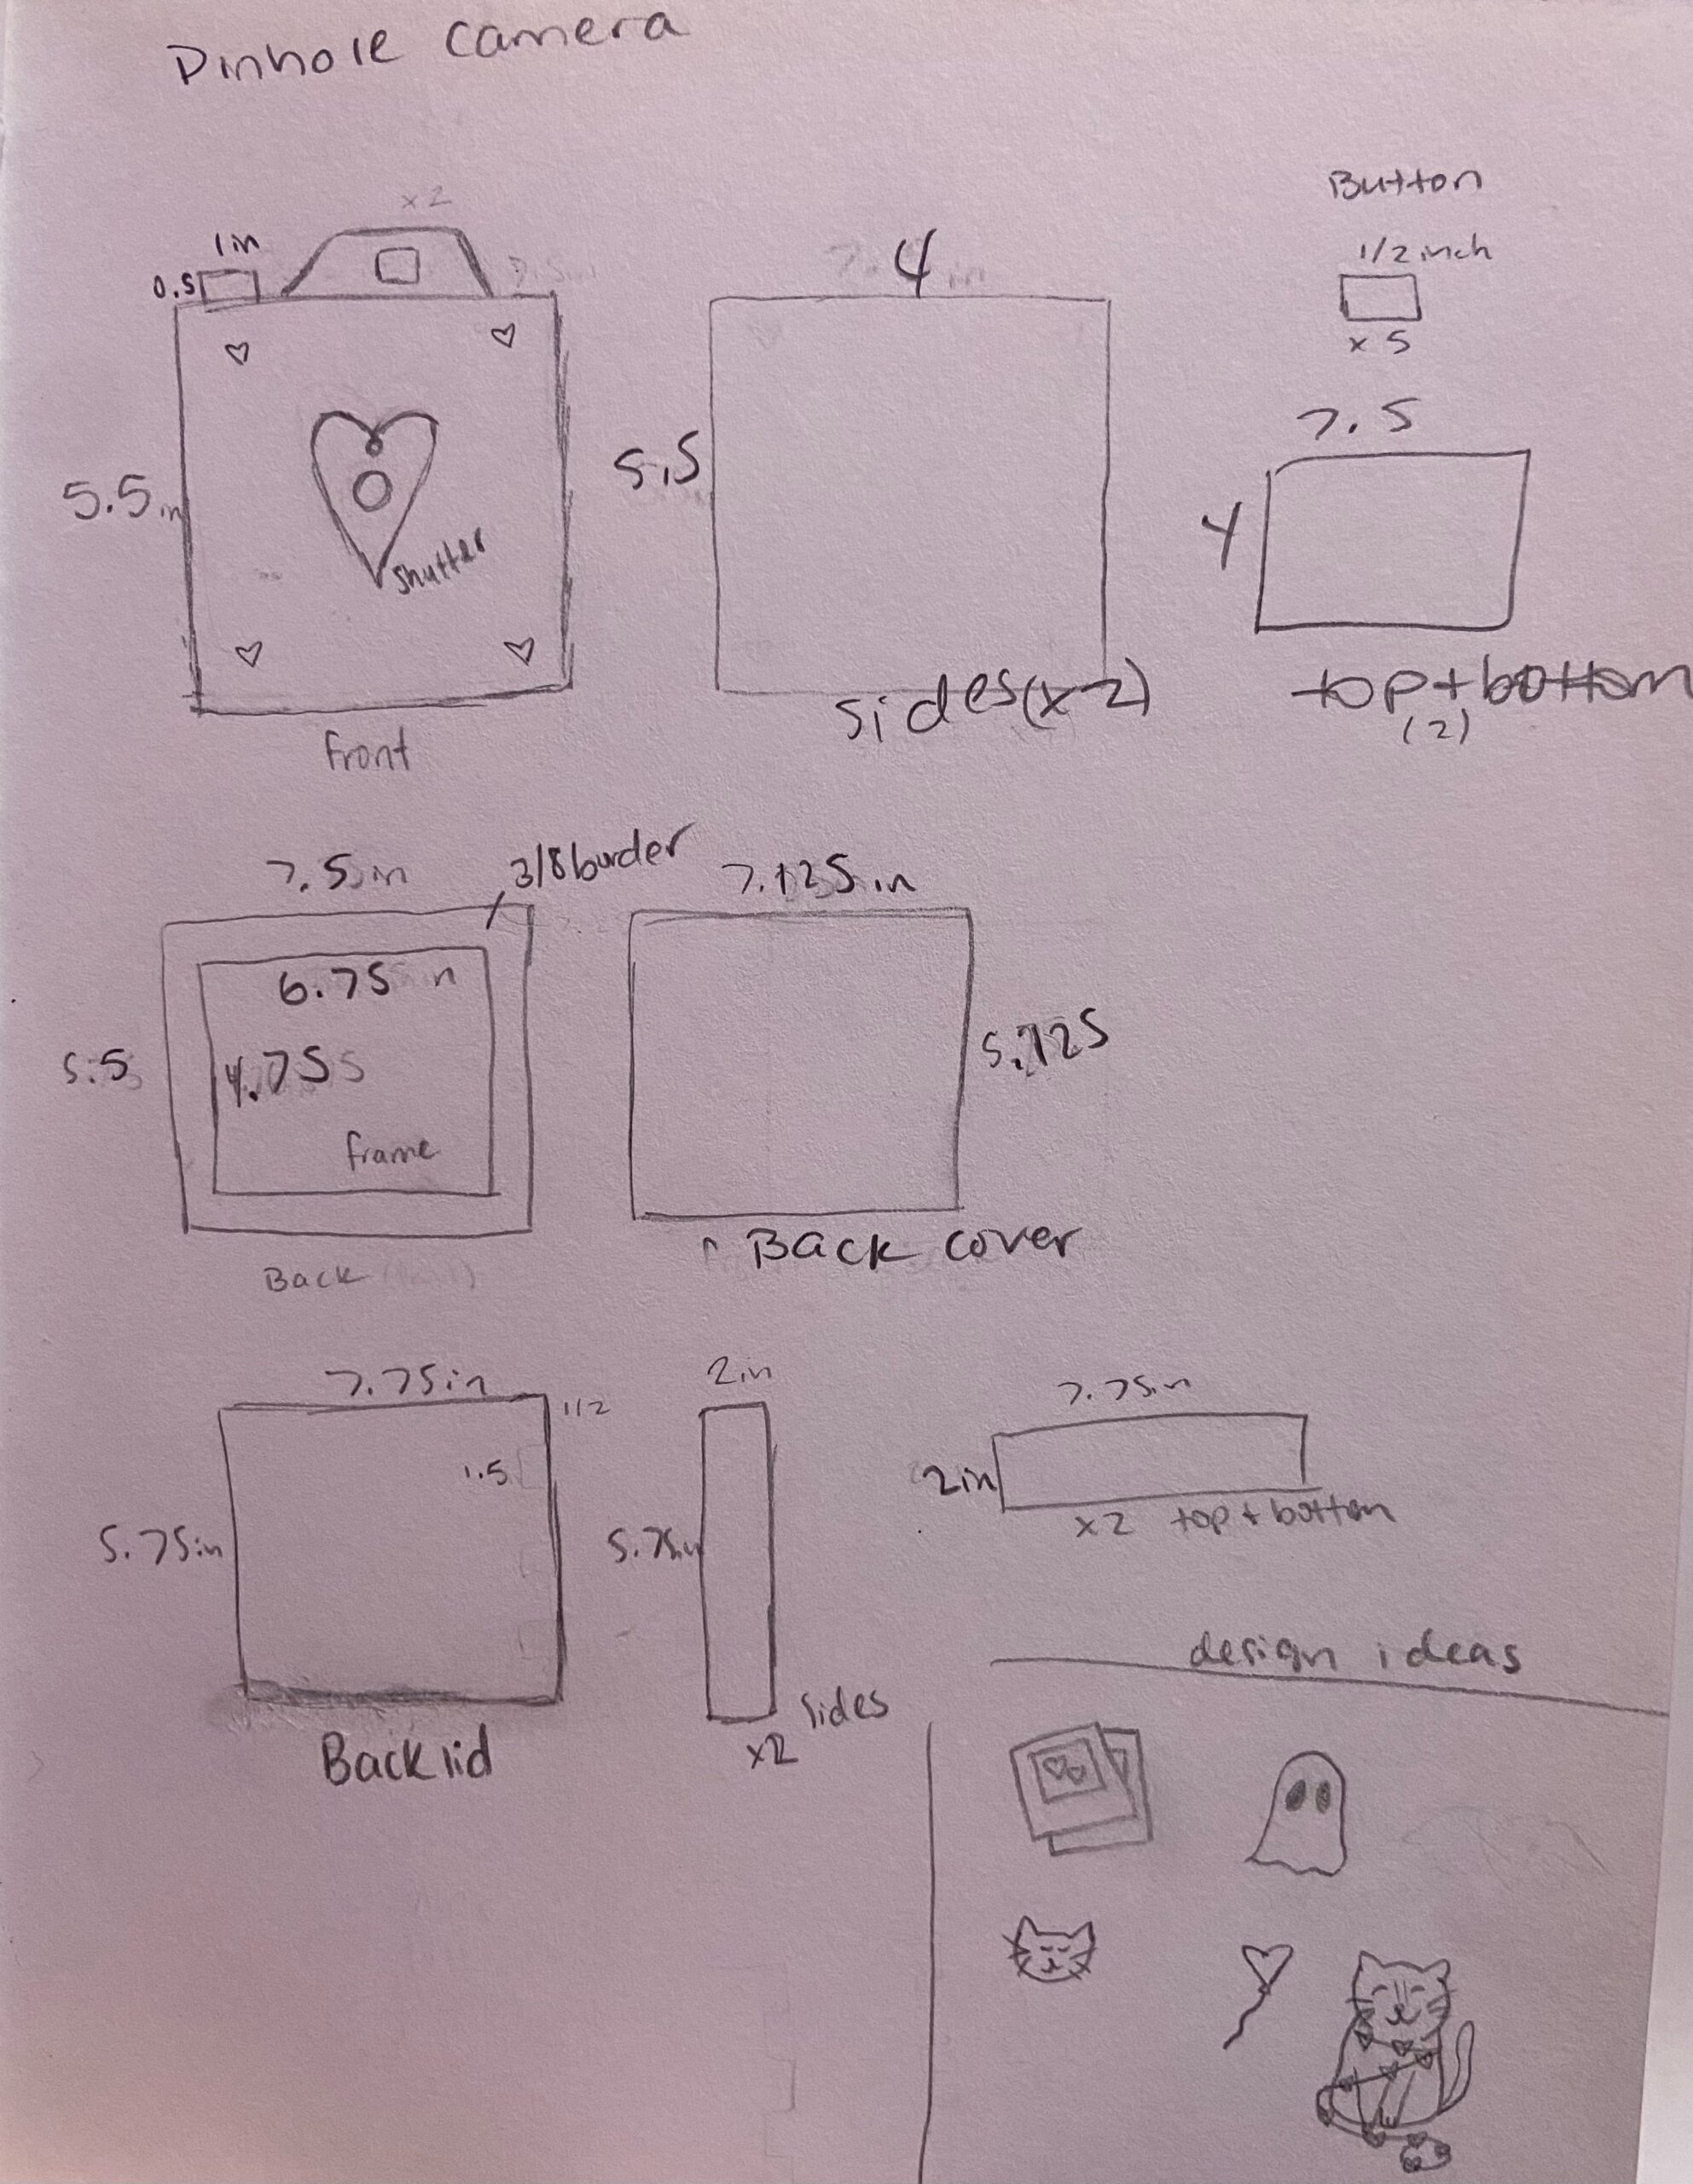 Pinhole camera
x2
1in
0.5
7.5in
5.5in
shutter
Front
4
5.5
sides(x2)
Button
1/2 inch
x 5
7.5
4
top+bottom
(2)
7.5in
3/8 border
6.75 in
5.5
4.75
frame
Back
7.125 in
5.125
Back cover
7.75in
1/2
1.5
5.75in
Back lid
2in
5.75in
sides
x2
7.75in
2in
x2 top+bottom
design ideas